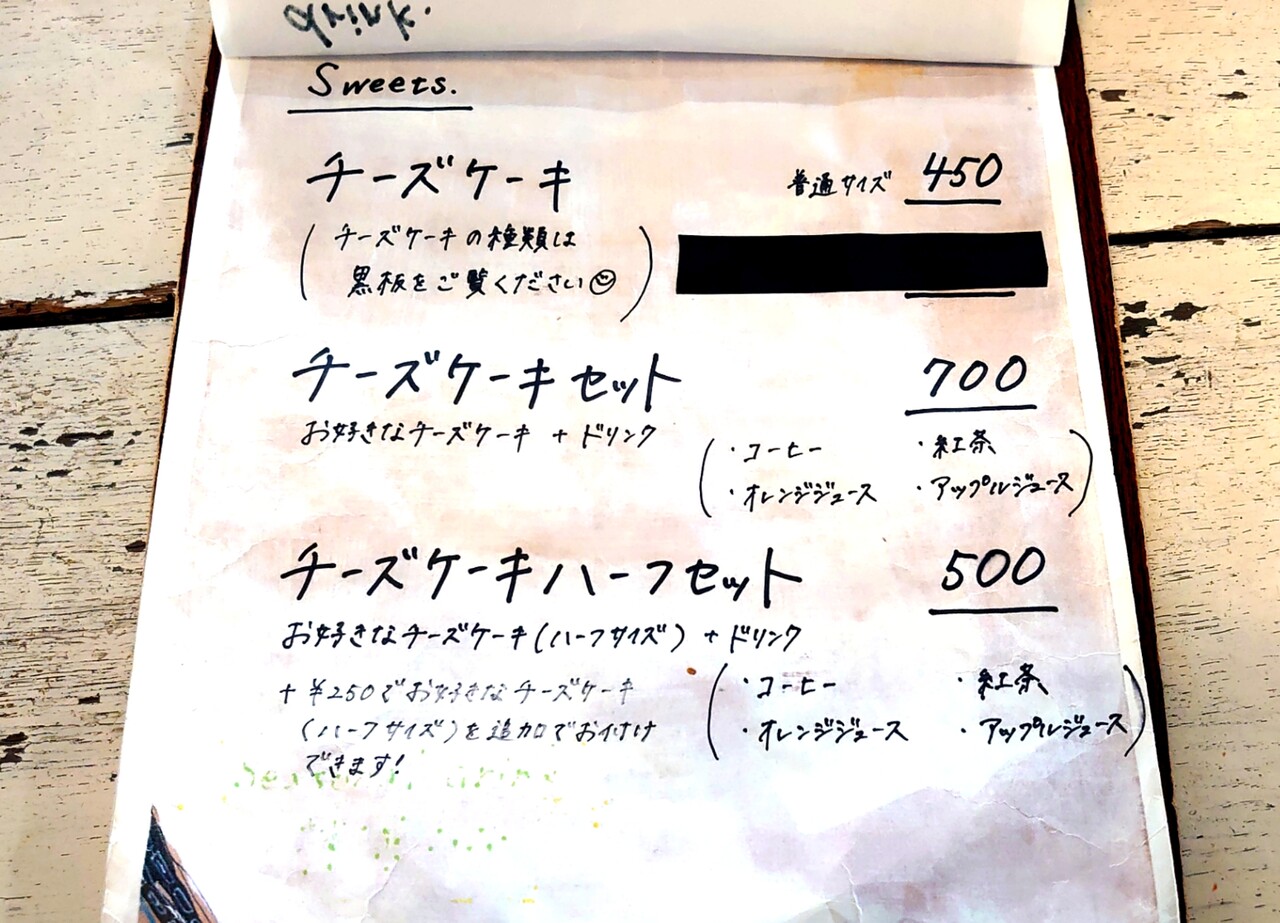 drink.
Sweets.
チーズケーキ 普通サイズ 450
(チーズケーキの種類は
黒板をご覧ください☺)
チーズケーキセット 700
お好きなチーズケーキ + ドリンク
(・コーヒー ・紅茶
・オレンジジュース ・アップルジュース)
チーズケーキハーフセット 500
お好きなチーズケーキ(ハーフサイズ) + ドリンク
+ ¥250でお好きなチーズケーキ
(ハーフサイズ)を追加でお付け
できます!
(・コーヒー ・紅茶
・オレンジジュース ・アップルジュース)